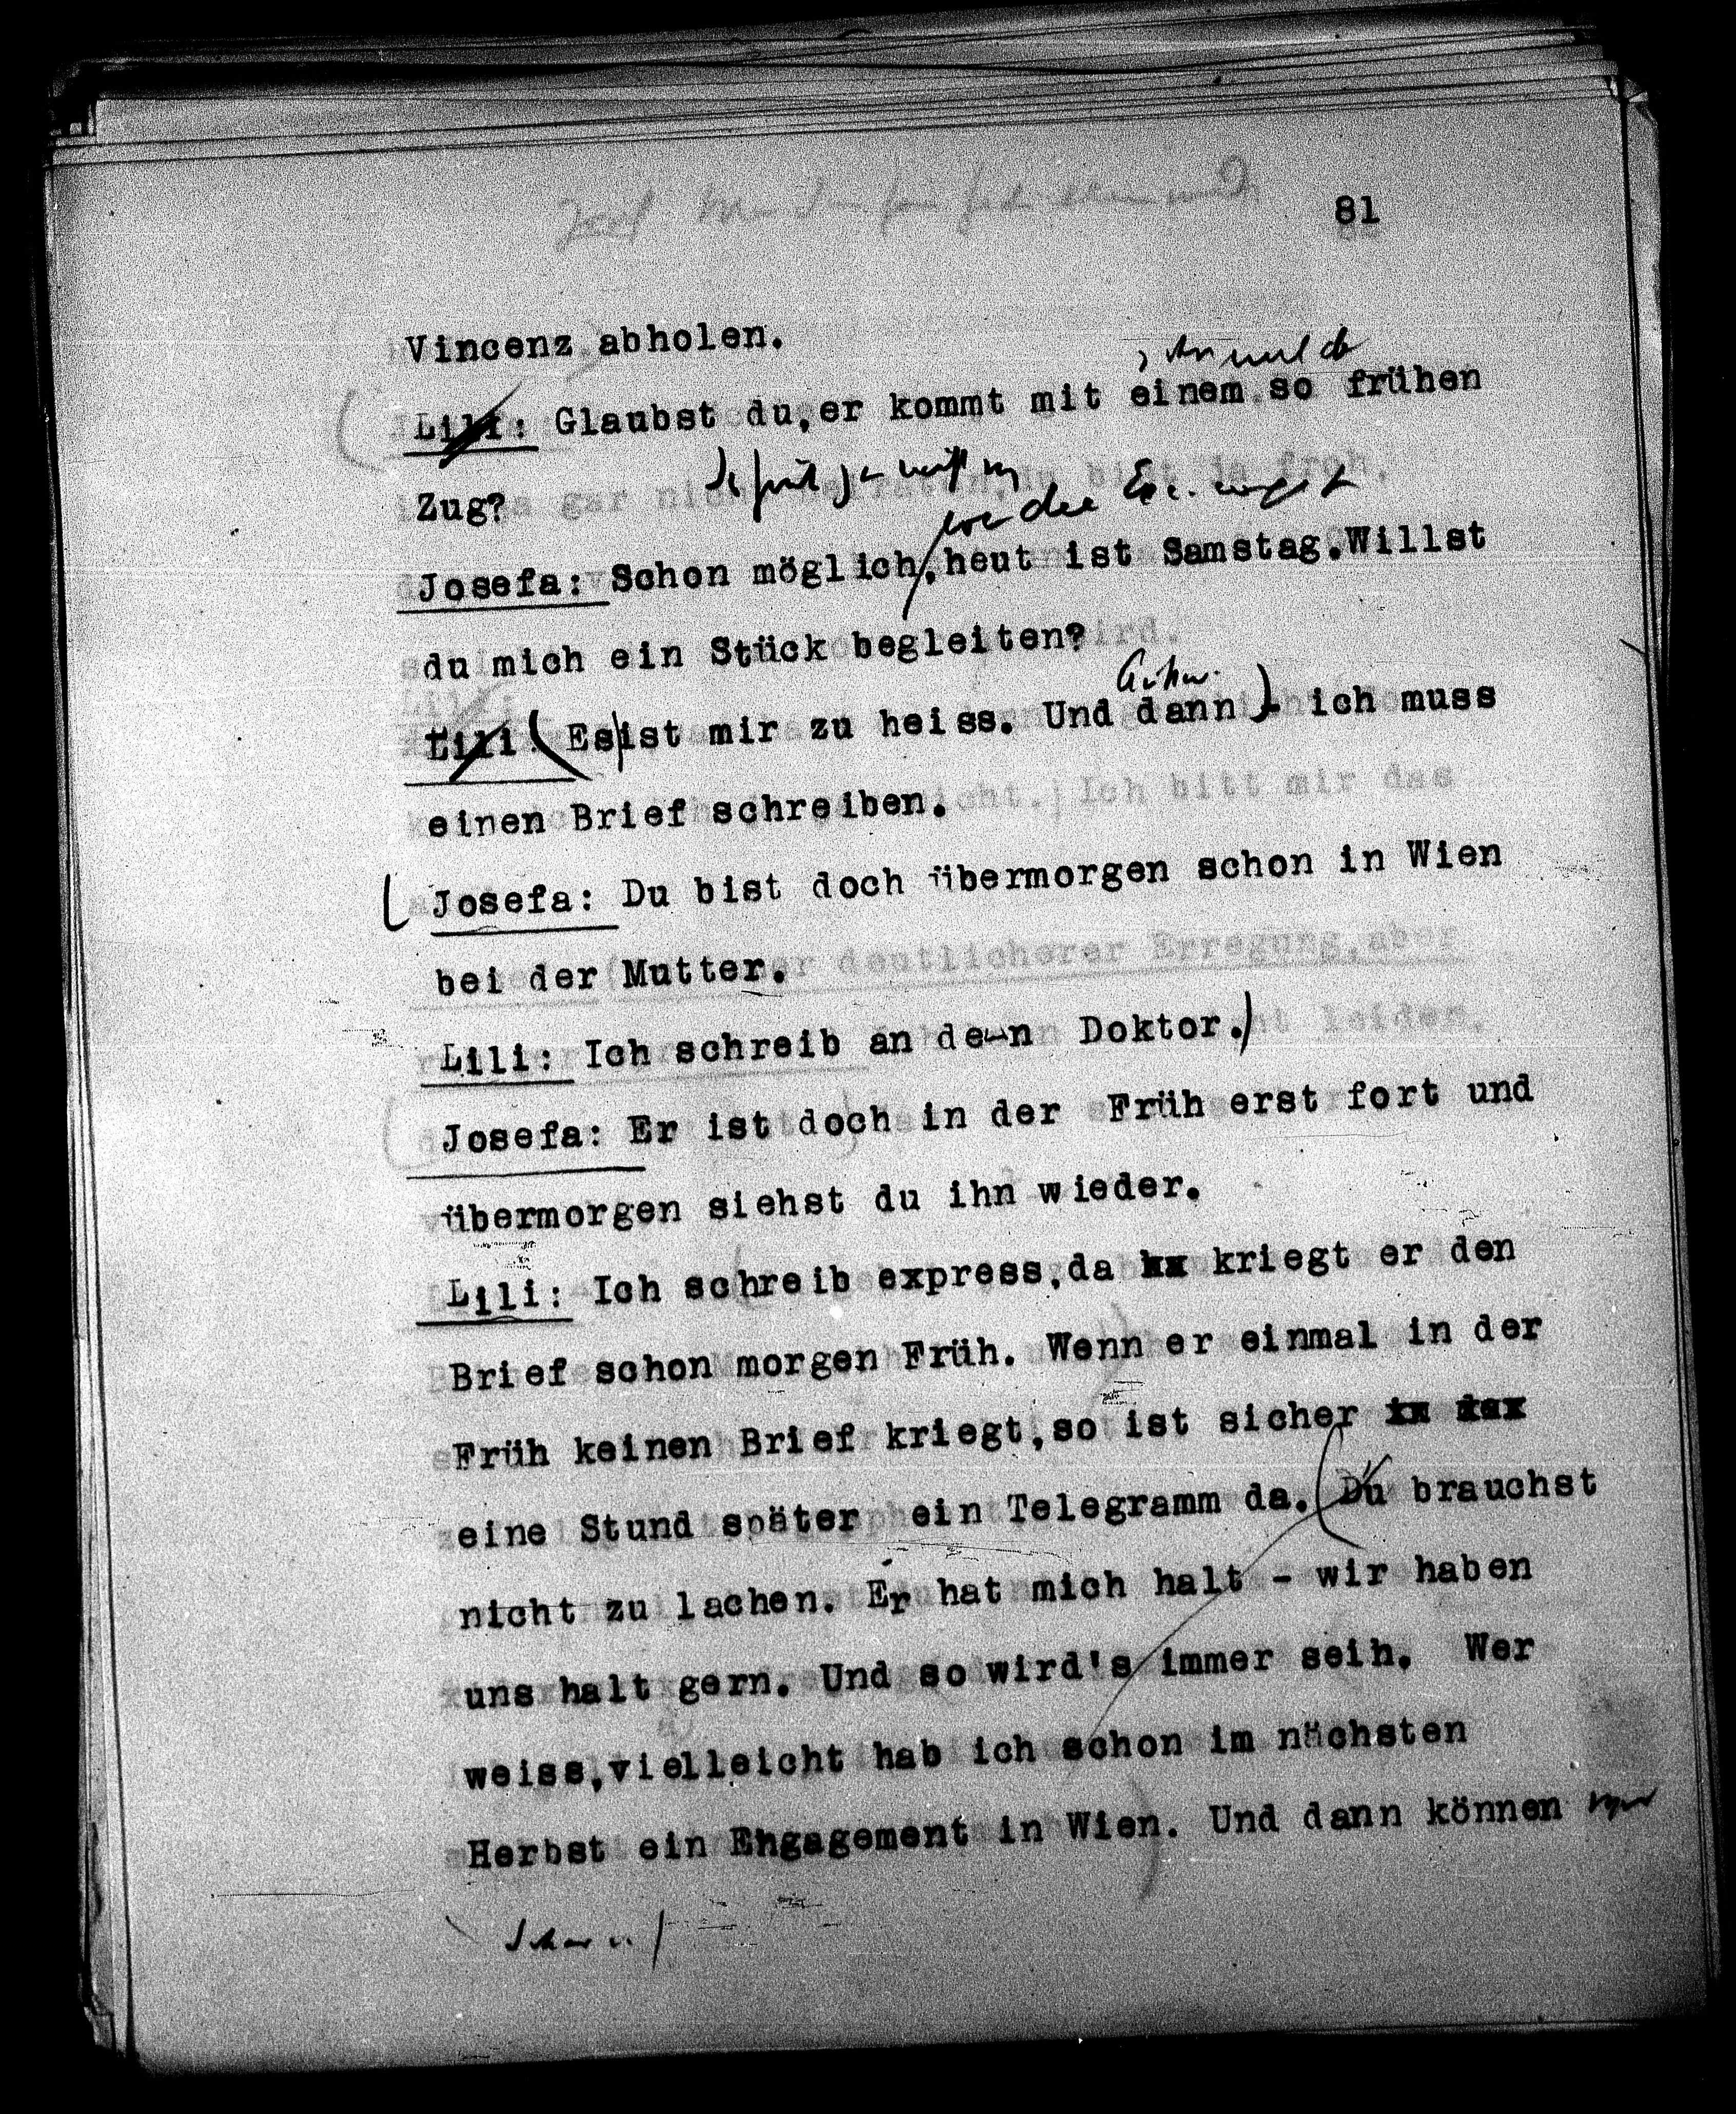 81
Vincenz abholen.
Lili: Glaubst du,er kommt mit einem so frühen
Zug?
Josefa: Schon möglich,heut ist Samstag.Willst
du mich ein Stück begleiten?
Lili: Es ist mir zu heiss. Und dann ich muss
einen Brief schreiben.
Josefa: Du bist doch übermorgen schon in Wien
bei der Mutter.
Lili: Ich schreib an den Doktor.)
Josefa: Er ist doch in der Früh erst fort und
übermorgen siehst du ihn wieder.
Lili: Ich schreib express,da kriegt er den
Brief schon morgen Früh. Wenn er einmal in der
Früh keinen Brief kriegt,so ist sicher
eine Stund später ein Telegramm da. (Du brauchst
nicht zu lachen. Er hat mich halt - wir haben
uns halt gern. Und so wird's immer sein. Wer
weiss,vielleicht hab ich schon im nächsten
Herbst ein Engagement in Wien. Und dann können